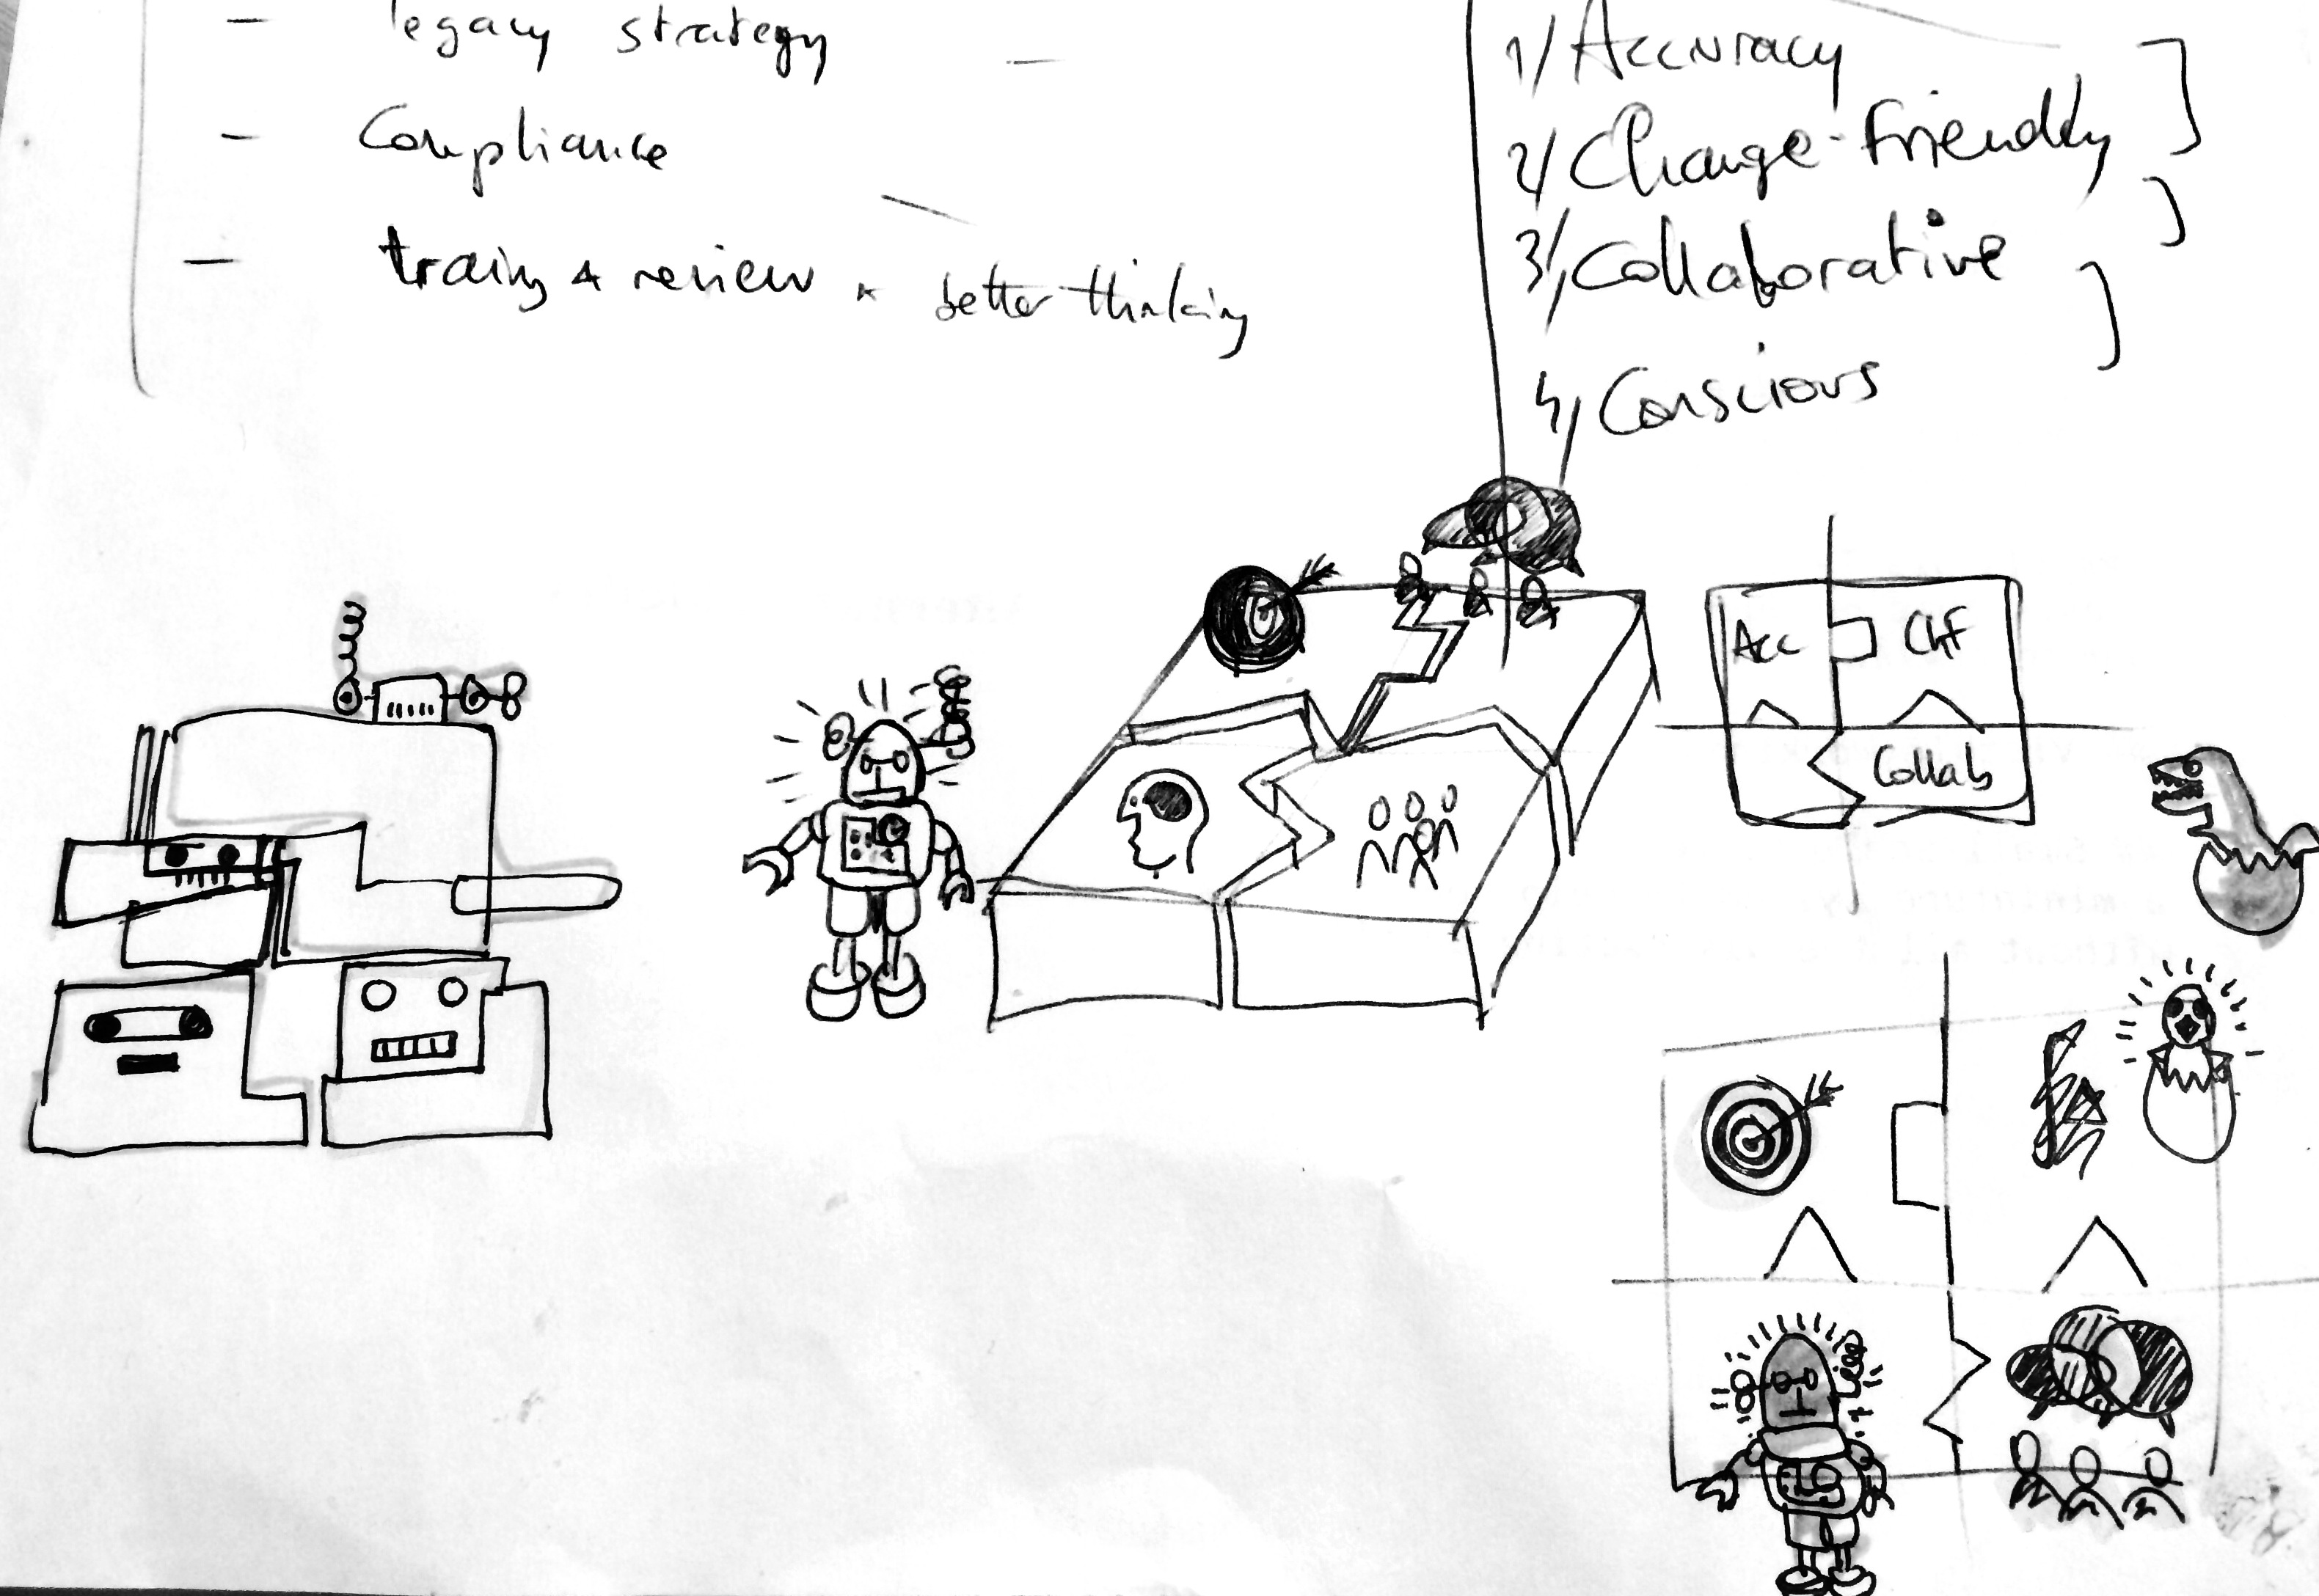 - legacy strategy -
- Compliance
- training & review × better thinking
1/ Accuracy
2/ Change-friendly
3/ Collaborative
4/ Conscious
Acc ChF
Collab